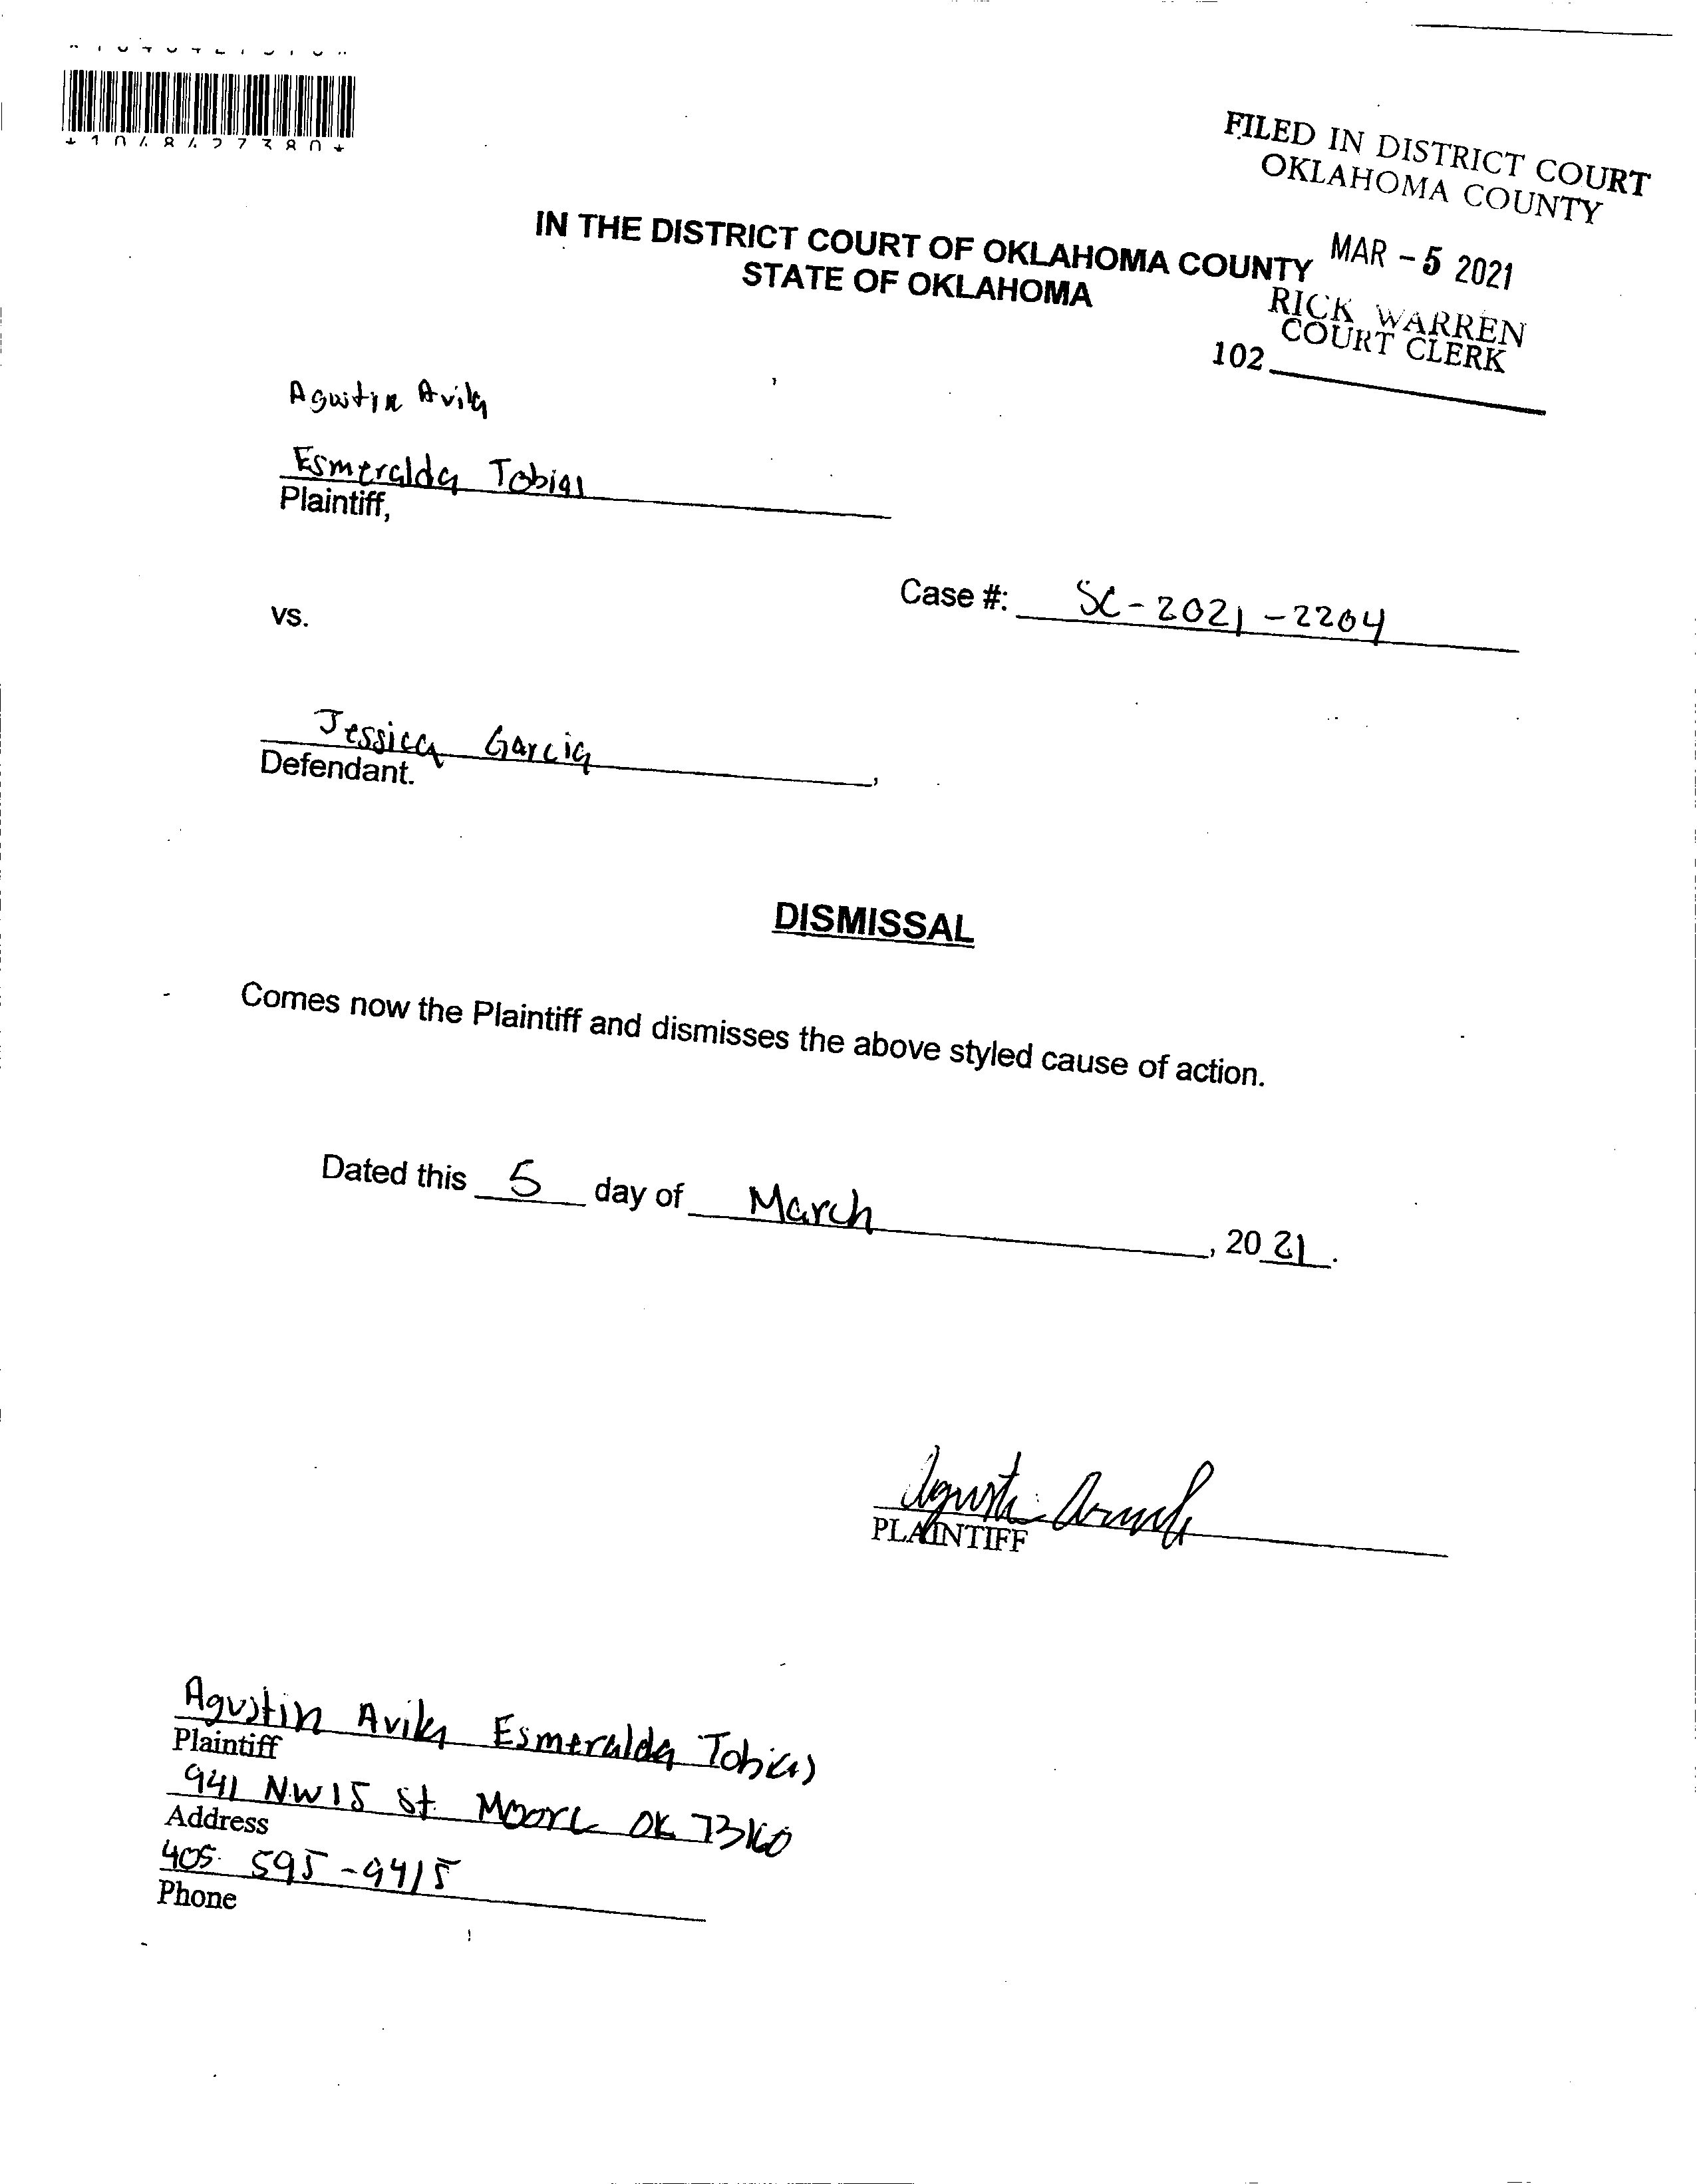 *1048427380*
FILED IN DISTRICT COURT
OKLAHOMA COUNTY
MAR - 5 2021
RICK WARREN
COURT CLERK
102
IN THE DISTRICT COURT OF OKLAHOMA COUNTY
STATE OF OKLAHOMA
Agustin Avila
Esmeralda Tobias
Plaintiff,
Case #: SC-2021-2204
vs.
Jessica Garcia
Defendant. ,
DISMISSAL
Comes now the Plaintiff and dismisses the above styled cause of action.
Dated this 5 day of March, 2021.
Agustin
PLAINTIFF
Agustin Avila Esmeralda Tobias
Plaintiff
941 NW 15 St. Moore OK 73160
Address
405 595-9415
Phone